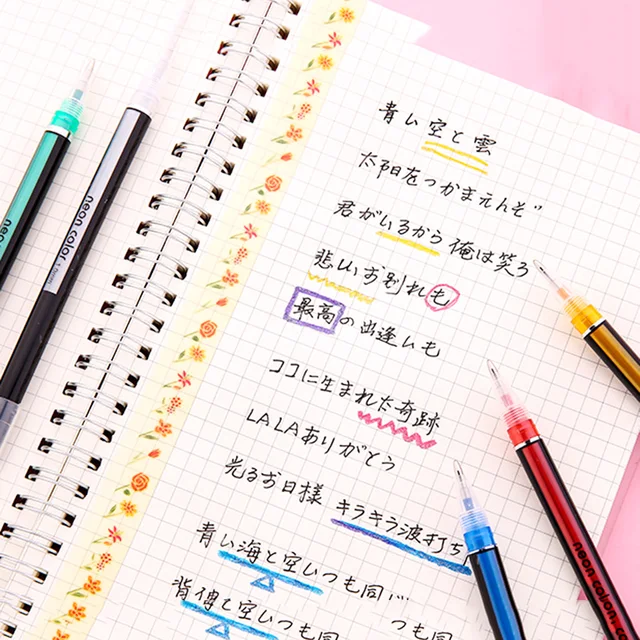 青い空と雲
太陽をつかまえんぞ"
君がいるから俺は笑ろ
悲しいお別れも
最高の出逢いも
ココに生まれた奇跡
LALAありがとう
光るお日様 キラキラ波打ち
青い海と空いつも同
つも同
neon color.
neon color.
neon color.